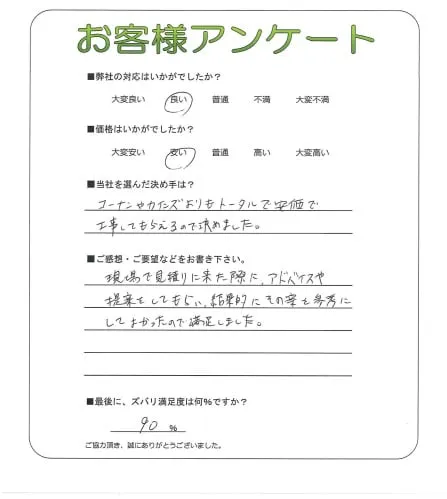 お客様アンケート
■弊社の対応はいかがでしたか？
大変良い 良い 普通 不満 大変不満
■価格はいかがでしたか？
大変安い 安い 普通 高い 大変高い
■当社を選んだ決め手は？
コーナンやカインズよりもトータルで安価で
工事してもらえるので決めました。
■ご感想・ご要望などをお書き下さい。
現場で見積りに来た際に、アドバイスや
提案をしてもらい、結果的にその案を参考に
してよかったので満足しました。
■最後に、ズバリ満足度は何％ですか？
90 %
ご協力頂き、誠にありがとうございました。